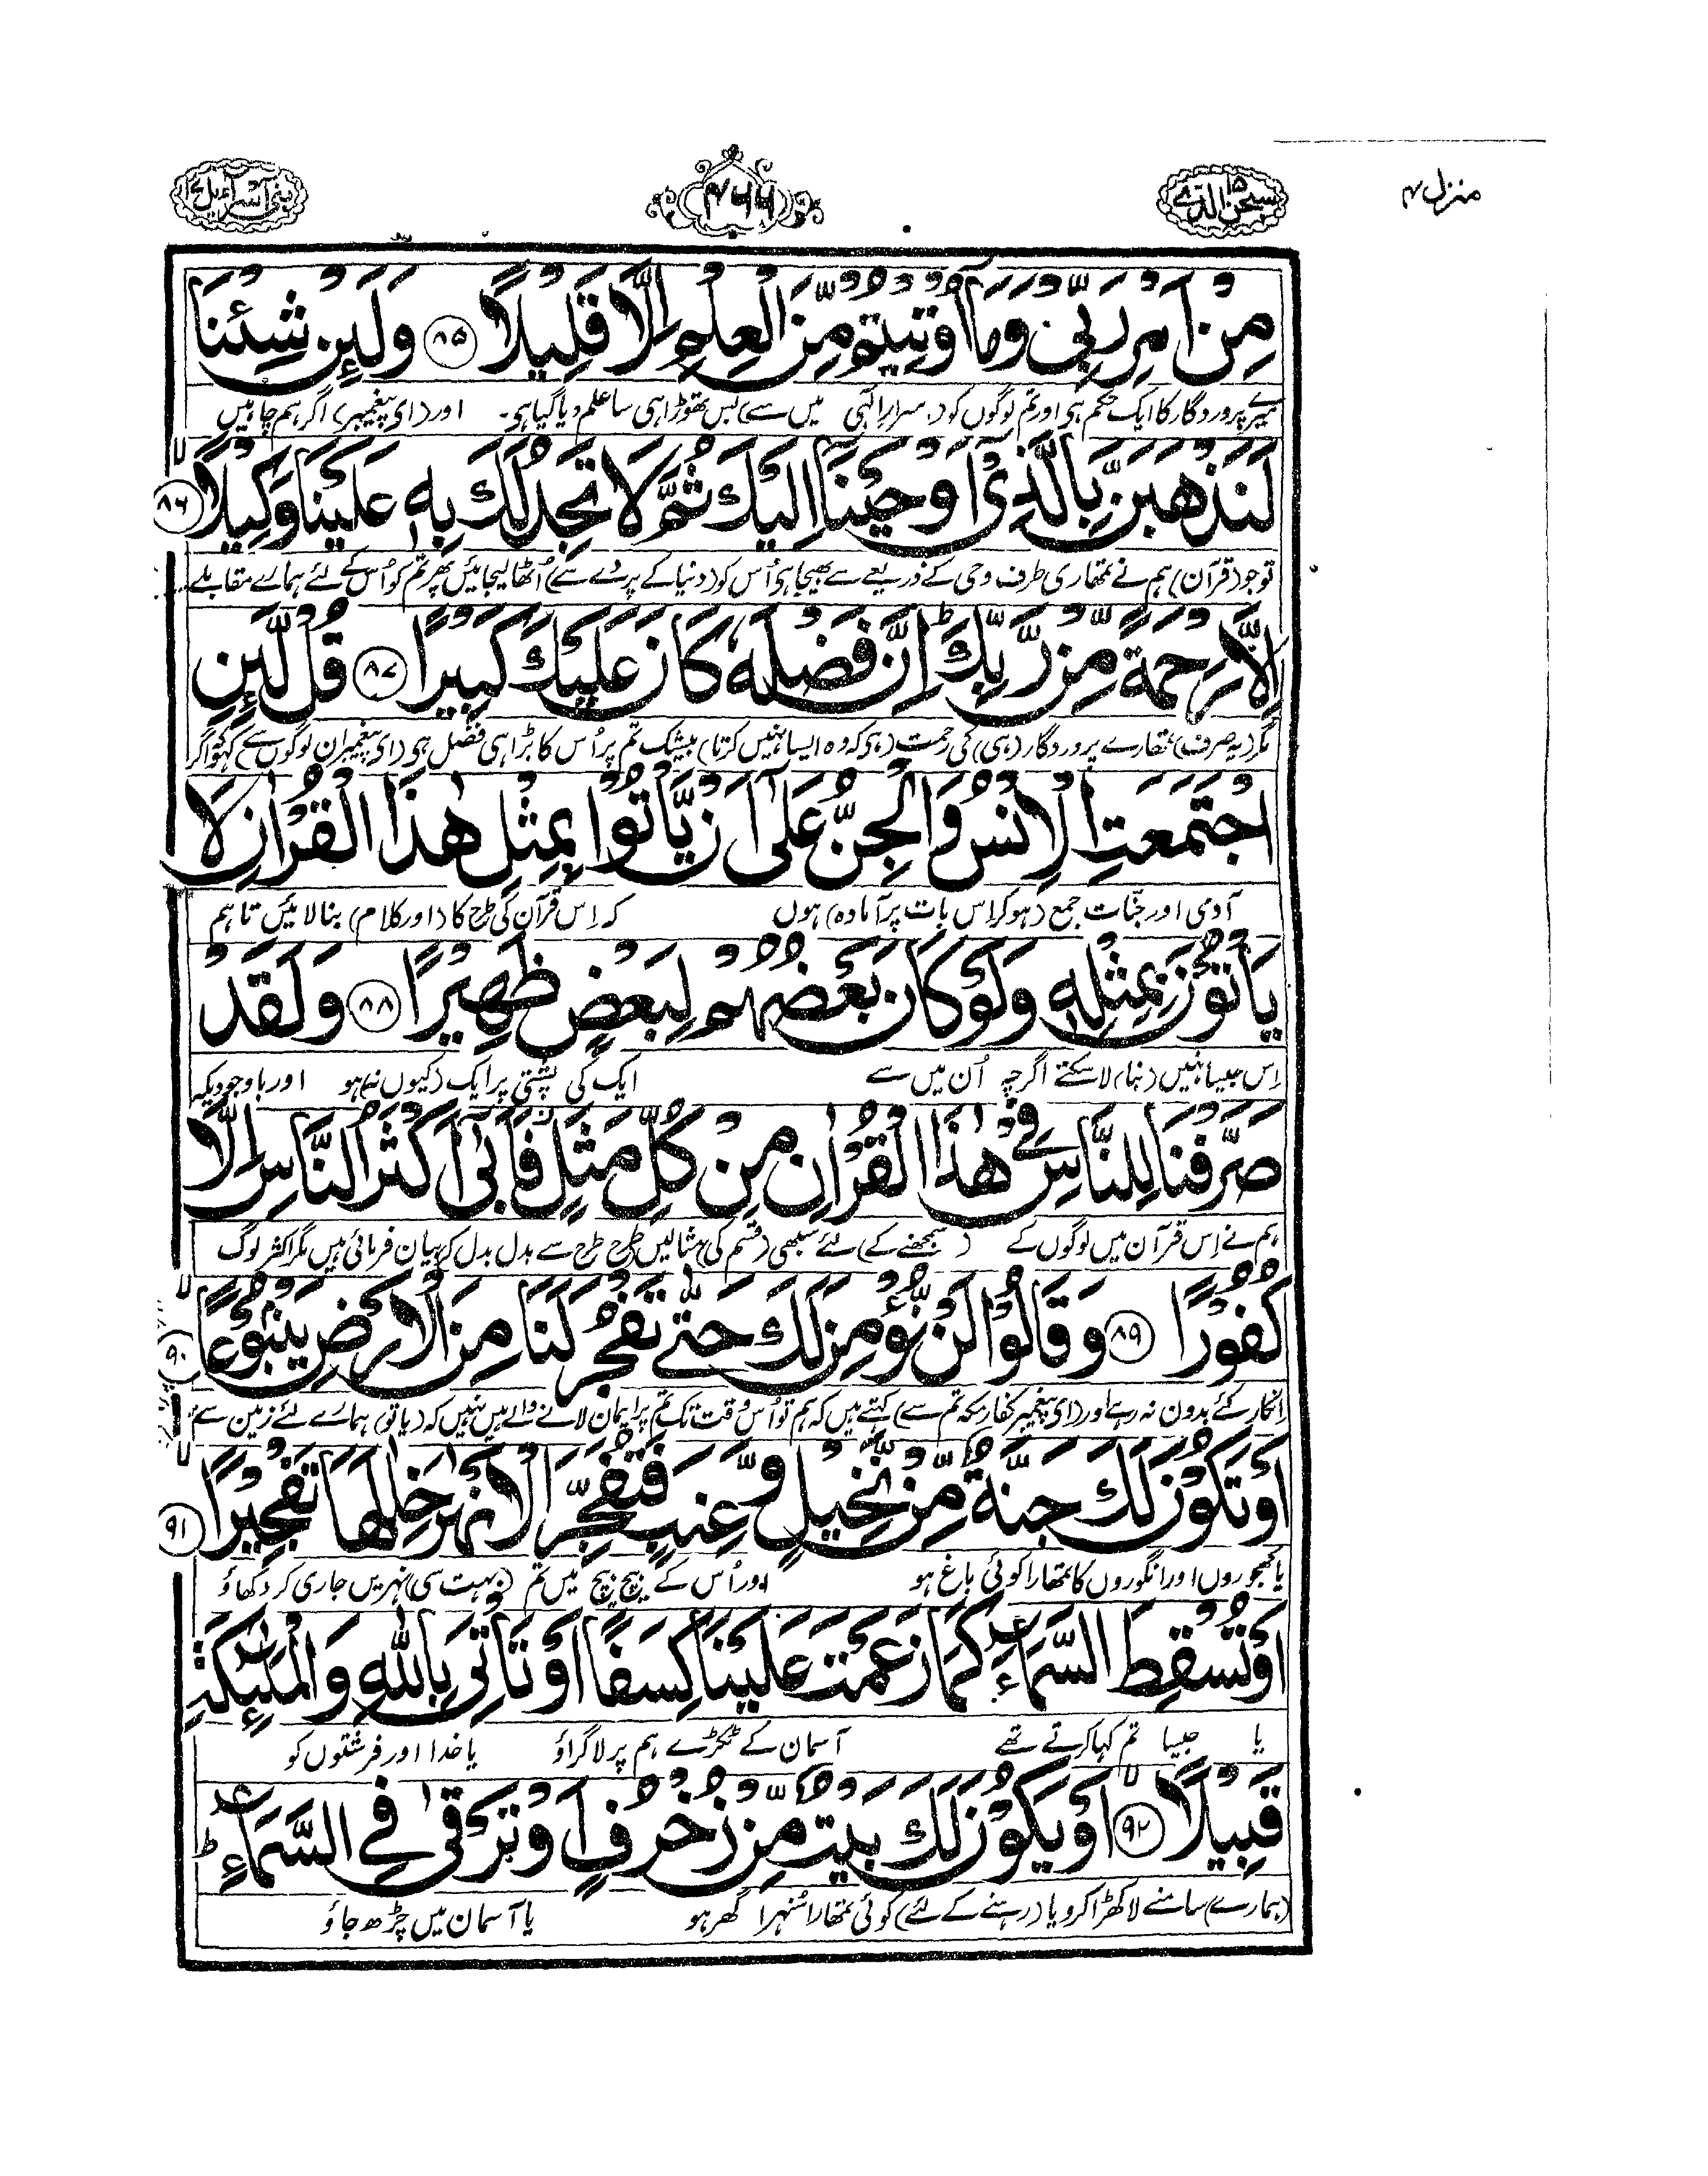 منزل ۴
سبحن الذی ۱۵
۴۶۶
بنی اسرآءیل ۱۷
مِنْ اَمْرِ رَبِّیْ وَمَاۤ اُوْتِیْتُمْ مِّنَ الْعِلْمِ اِلَّا قَلِیْلًا ﴿۸۵﴾ وَلَئِنْ شِئْنَا
میرے پروردگار کا ایک حکم ہی اور تم لوگوں کو (اسرار الٰہی میں سے) بس تھوڑا ہی سا علم دیا گیا ہی۔ اور (ای پیغمبر) اگر ہم چاہیں
لَنَذْهَبَنَّ بِالَّذِیْۤ اَوْحَیْنَاۤ اِلَیْكَ ثُمَّ لَا تَجِدُ لَكَ بِهٖ عَلَیْنَا وَكِیْلًا ﴿۸۶﴾
تو جو (قرآن) ہم نے تمھاری طرف وحی کے ذریعے سے بھیجا ہی اُس کو (دنیا کے پردے سے) اُٹھا لیجائیں پھر تم کو اُس کے لئے ہمارے مقابلے
اِلَّا رَحْمَةً مِّنْ رَّبِّكَ ؕ اِنَّ فَضْلَهٗ كَانَ عَلَیْكَ كَبِیْرًا ﴿۸۷﴾ قُلْ لَّئِنِ
مگر (یہ صرف) تمھارے پروردگار (ہی) کی رحمت (ہی کہ وہ ایسا نہیں کرتا) بیشک تم پر اُس کا بڑا ہی فضل ہی (ای پیغمبر ان لوگوں سے) کہو اگر
اجْتَمَعَتِ الْاِنْسُ وَالْجِنُّ عَلٰۤی اَنْ یَّاْتُوْا بِمِثْلِ هٰذَا الْقُرْاٰنِ لَا
آدمی اور جنّات جمع (ہو کر اِس بات پر آمادہ) ہوں کہ اِس قرآن کی طرح کا (اور کلام) بنا لائیں تاہم
یَاْتُوْنَ بِمِثْلِهٖ وَلَوْ كَانَ بَعْضُهُمْ لِبَعْضٍ ظَهِیْرًا ﴿۸۸﴾ وَلَقَدْ
اِس جیسا نہیں (بنا) لا سکتے اگرچہ اُن میں سے ایک کی پشتی پر ایک (کیوں نہ) ہو اور باوجودیکہ
صَرَّفْنَا لِلنَّاسِ فِیْ هٰذَا الْقُرْاٰنِ مِنْ كُلِّ مَثَلٍ فَاَبٰۤی اَكْثَرُ النَّاسِ اِلَّا
ہم نے اِس قرآن میں لوگوں کے (سمجھنے کے) لئے سبھی (قسم کی) مثالیں طرح طرح سے بدل بدل کر بیان فرمائی ہیں مگر اکثر لوگ
كُفُوْرًا ﴿۸۹﴾ وَقَالُوْا لَنْ نُّؤْمِنَ لَكَ حَتّٰی تَفْجُرَ لَنَا مِنَ الْاَرْضِ یَنْۢبُوْعًا ﴿۹۰﴾
انکار کئے بدون نہ رہے اور (ای پیغمبر کفار مکہ تم سے) کہتے ہیں کہ ہم تو اُس وقت تک تم پر ایمان لانے والے ہیں نہیں کہ (یا تو) ہمارے لئے زمین سے
اَوْ تَكُوْنَ لَكَ جَنَّةٌ مِّنْ نَّخِیْلٍ وَّعِنَبٍ فَتُفَجِّرَ الْاَنْهٰرَ خِلٰلَهَا تَفْجِیْرًا ﴿۹۱﴾
یا کھجوروں اور انگوروں کا تمھارا کوئی باغ ہو اور اُس کے بیچ بیچ میں تم (بہت سی) نہریں جاری کر دکھاؤ
اَوْ تُسْقِطَ السَّمَآءَ كَمَا زَعَمْتَ عَلَیْنَا كِسَفًا اَوْ تَاْتِیَ بِاللّٰهِ وَالْمَلٰٓئِكَةِ
یا جیسا تم کہا کرتے تھے آسمان کے ٹکڑے ہم پر لا گراؤ یا خدا اور فرشتوں کو
قَبِیْلًا ﴿۹۲﴾ اَوْ یَكُوْنَ لَكَ بَیْتٌ مِّنْ زُخْرُفٍ اَوْ تَرْقٰی فِی السَّمَآءِ ؕ
(ہمارے) سامنے لا کھڑا کرو یا (رہنے کے لئے) کوئی تمھارا سُنہرا گھر ہو یا آسمان میں چڑھ جاؤ